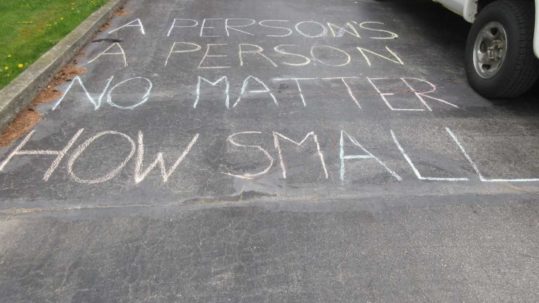 A PERSON'S
A PERSON
NO MATTER
HOW SMALL